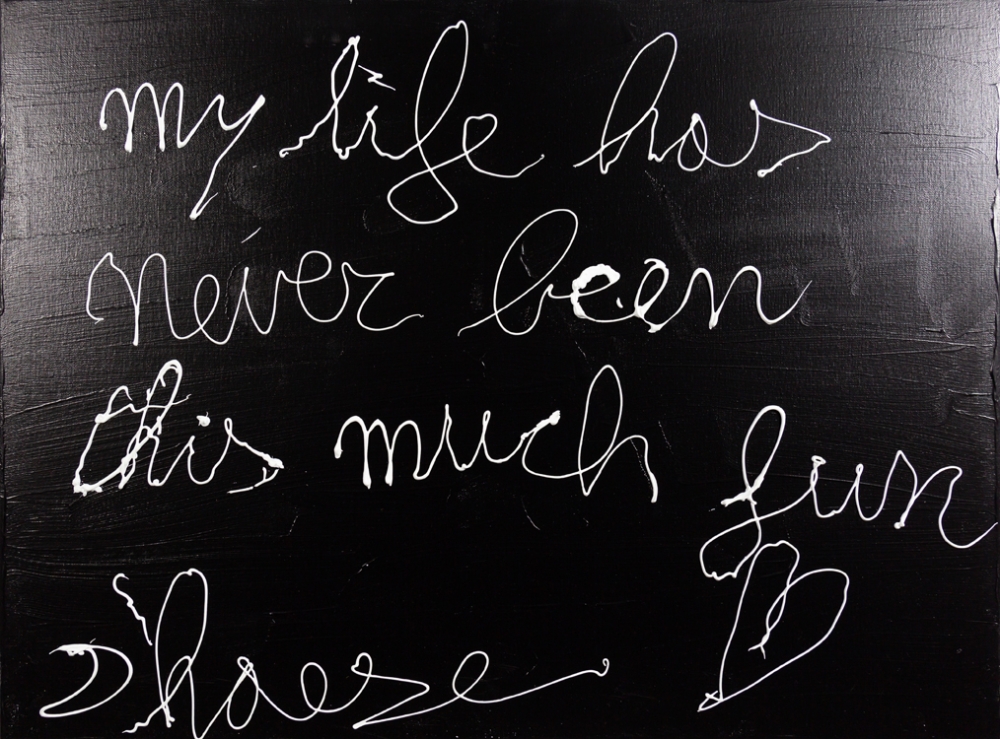 my life has
never been
this much fun
B
D'haese